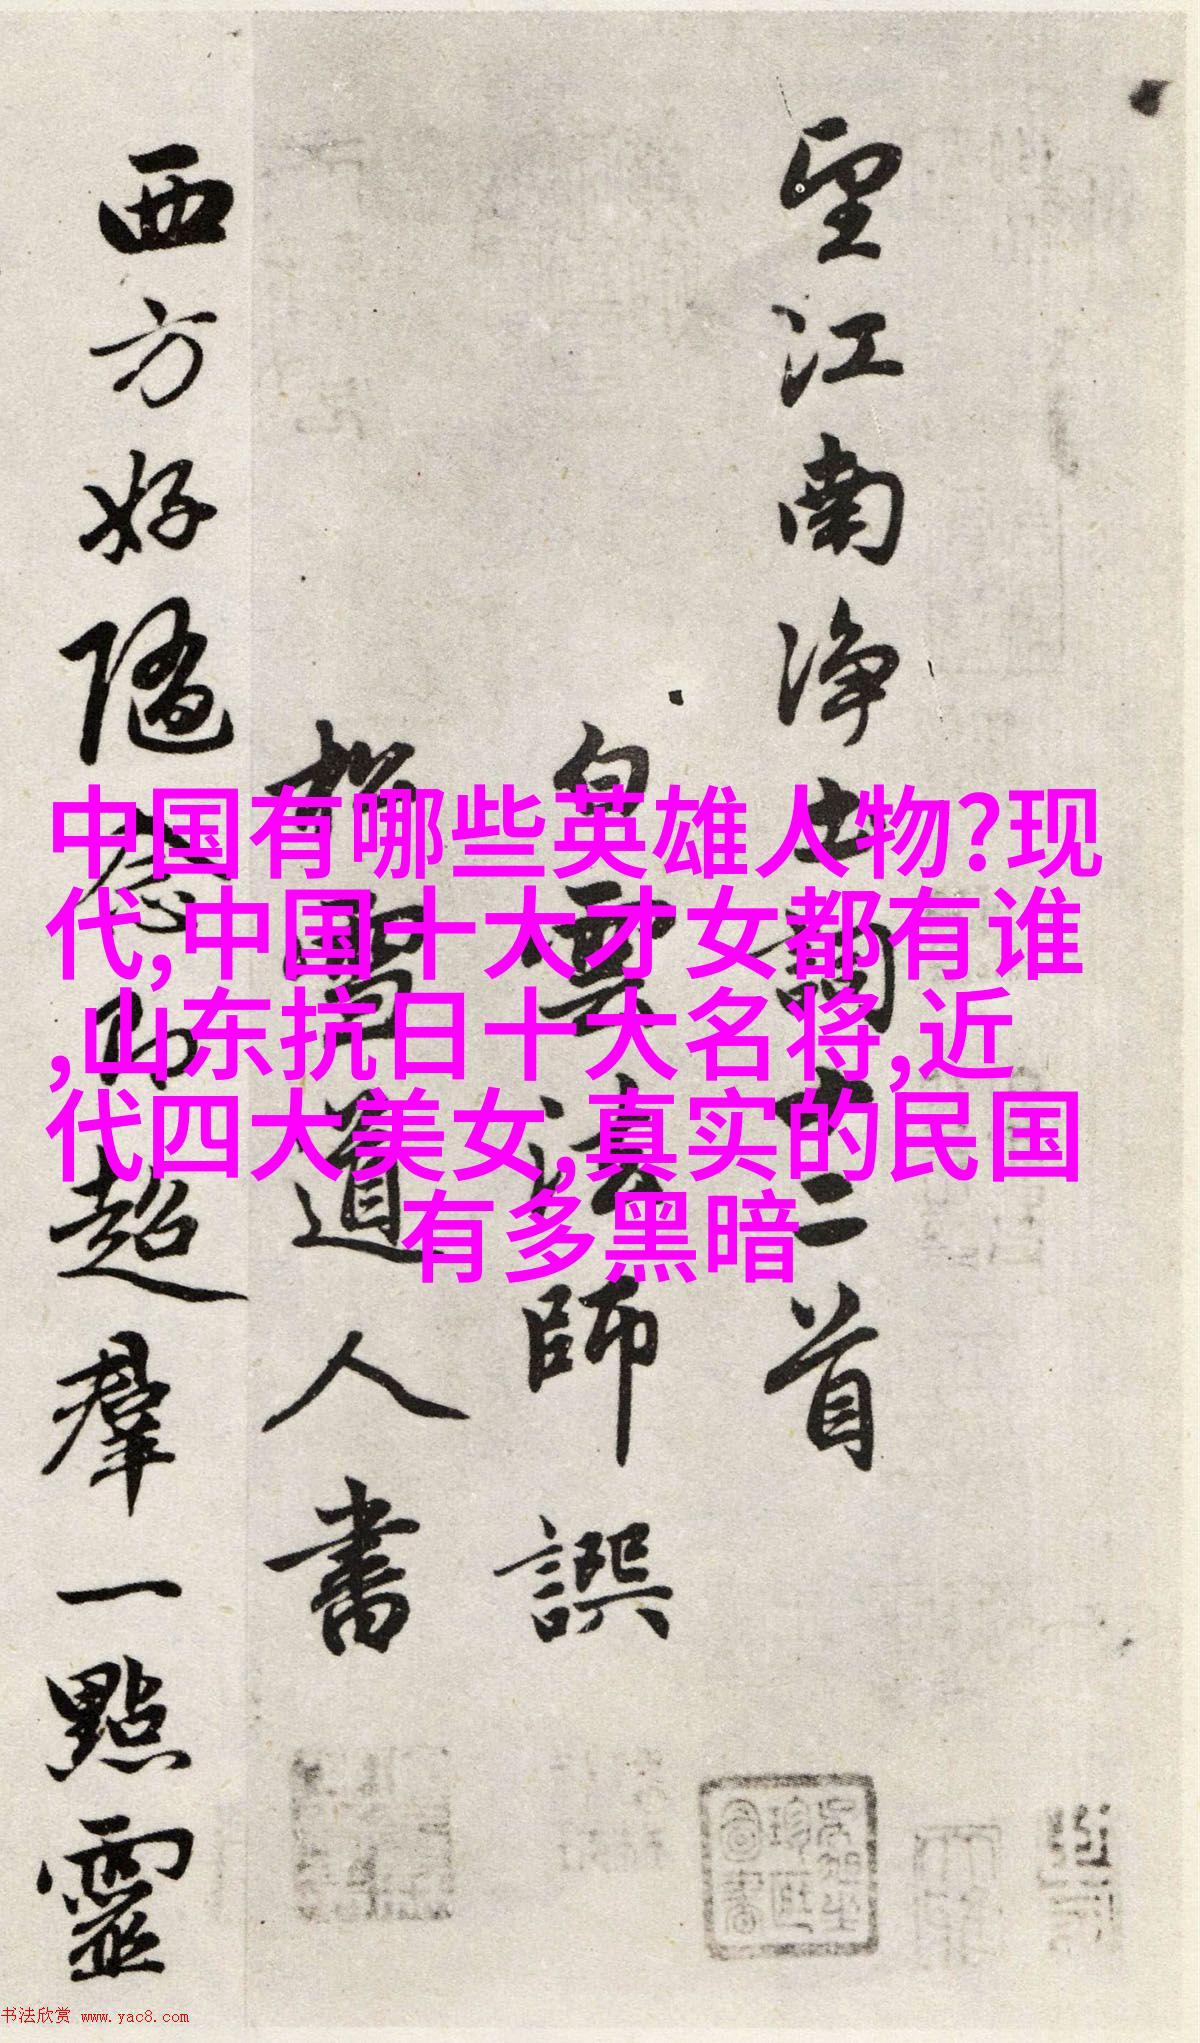 望江南淨土詞十二首
白雲法師譔
松雪道人書
西方好隨念即超羣一點靈
中国有哪些英雄人物?现
代,中国十大才女都有谁
,山东抗日十大名将,近
代四大美女,真实的民国
有多黑暗
书法欣赏 www.yac8.com